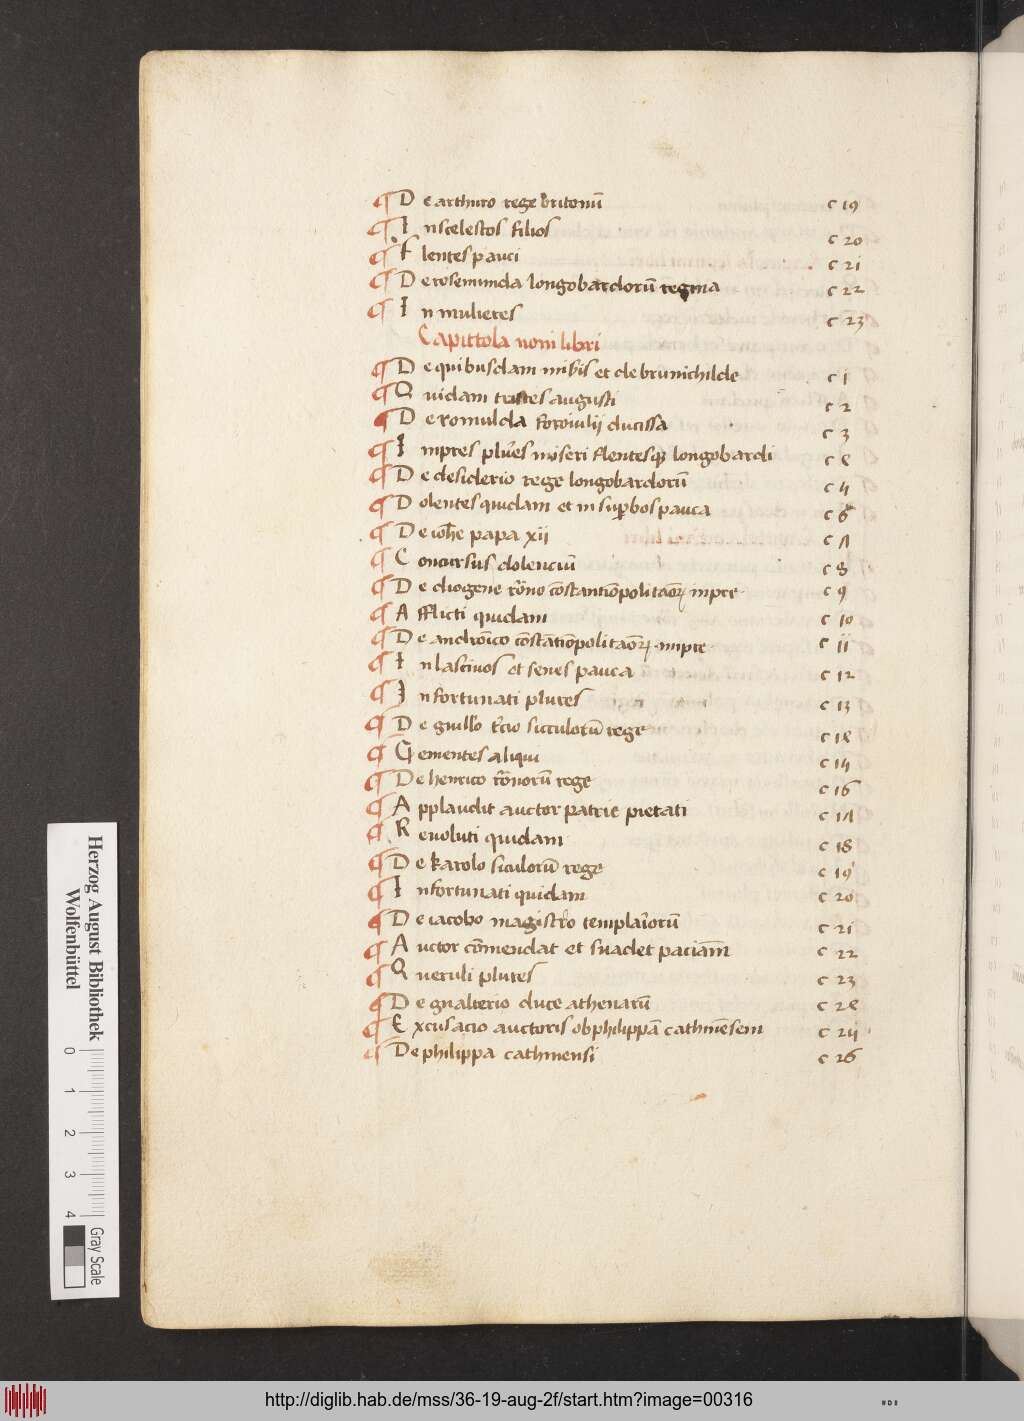 De arthuro rege britonū c 19
In scelestos filios c 20
Flentes pauci c 21
De rosemunda longobardorū regina c 22
In mulieres c 23
Capittola noni libri
De quibusdam mi et de brunichilde c 1
Quidam tristes augusti c 2
De romulda foroiulij ducissa c 3
Inpres plures miseri flentesque longobardi c 4
De desiderio rege longobardorū c 5
Dolentes quidam et in supbos pauca c 6
De ioħe papa xii c 7
Concursus dolenciū c 8
De diogene rōno cōstantiōpolitaōꝝ inpre c 9
Afflicti quidam c 10
De andrōico cōstātiōpolitaōꝝ inpre c 11
In lascivos et senes pauca c 12
Infortunati plures c 13
De guillo t̄cio sicculorū rege c 14
Gementes aliqui c 15
De henrico rōnorū rege c 16
Applaudit auctor patrie pietati c 17
Revoluti quidam c 18
De karolo siculorū rege c 19
Infortunati quidam c 20
De iacobo magistro templariorū c 21
Auctor cōmendat et suadet paciām c 22
Queruli plures c 23
De gualterio duce athenarū c 24
Excusacio auctoris ob philippā cathinēsem c 25
De philippa cathinensi c 26
Herzog August Bibliothek
Wolfenbüttel
0 1 2 3 4
Gray Scale
http://diglib.hab.de/mss/36-19-aug-2f/start.htm?image=00316